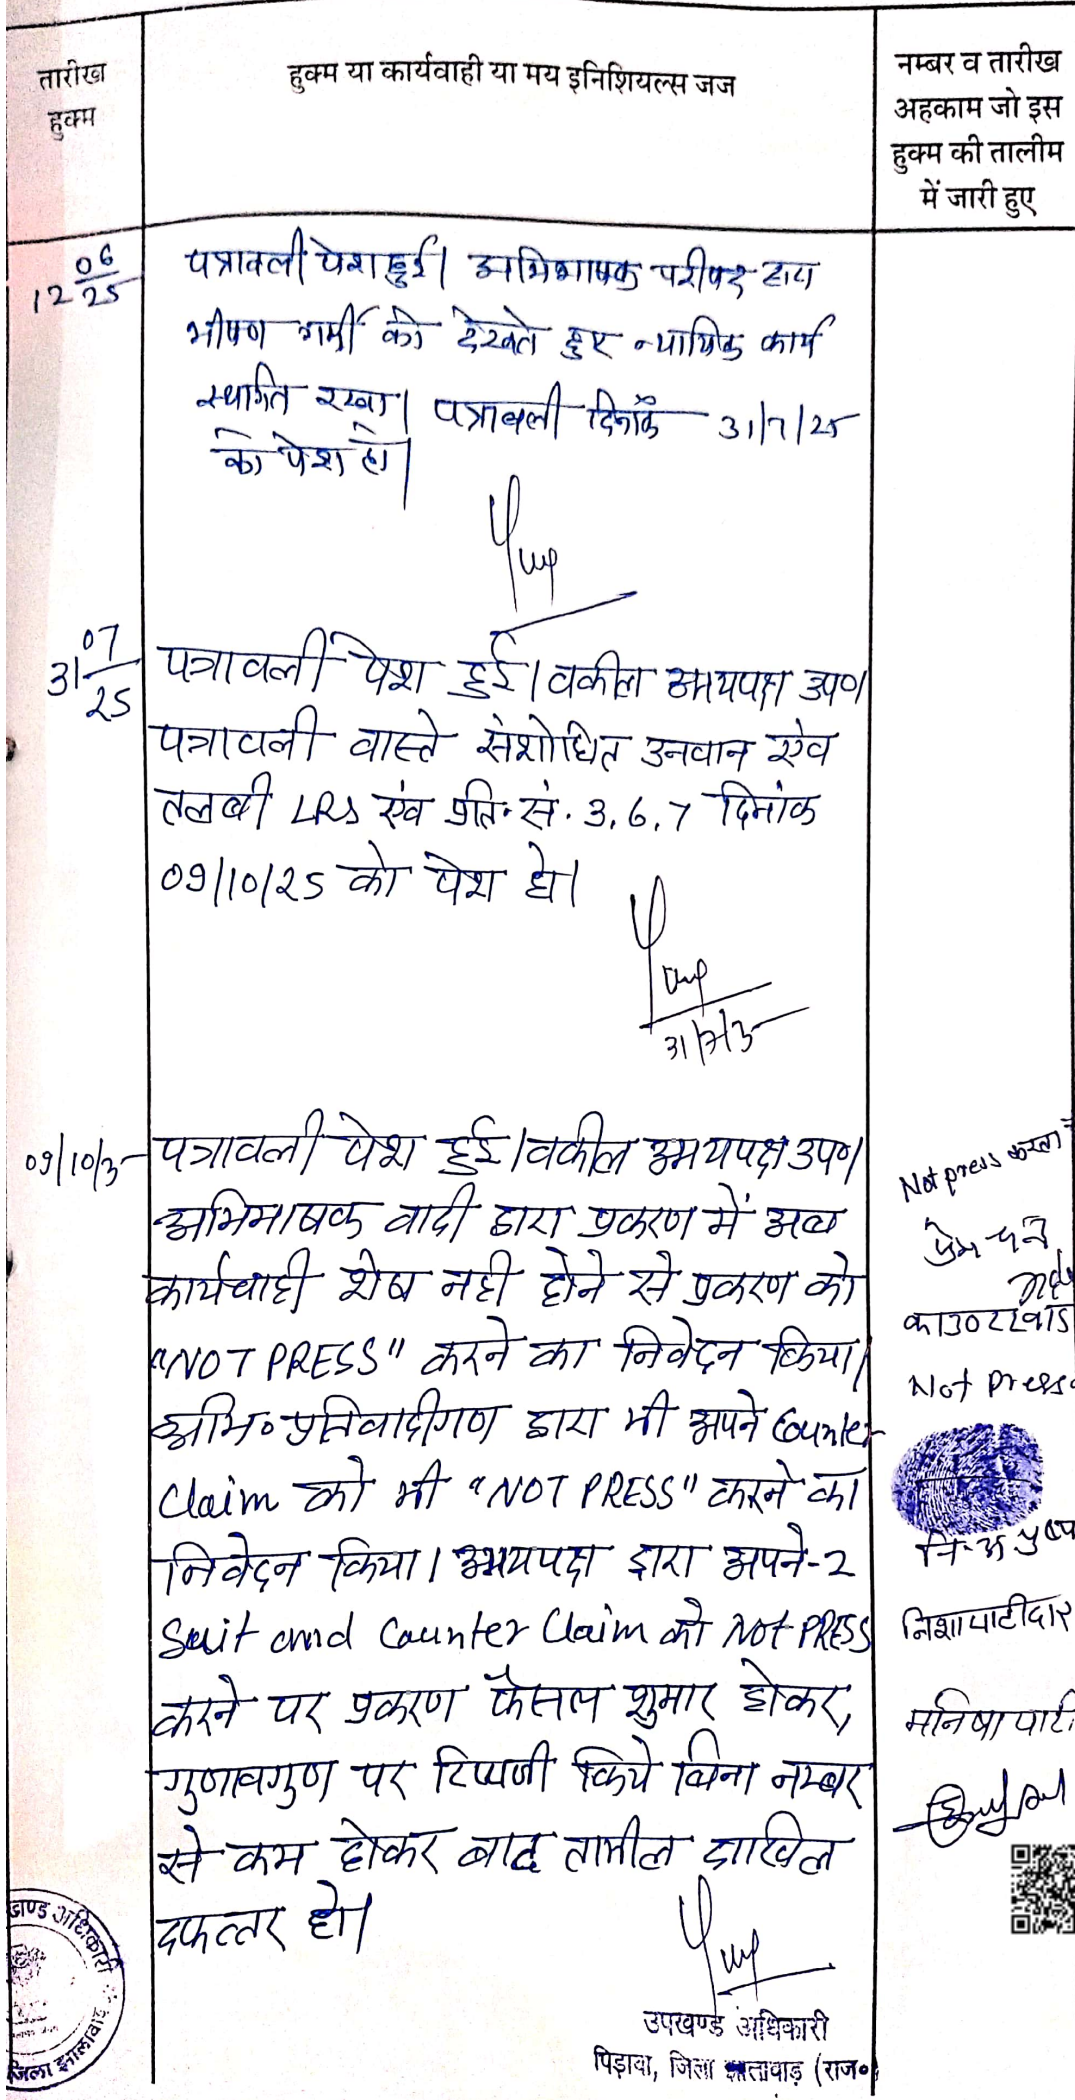 तारीख
हुक्म
हुक्म या कार्यवाही या मय इनिशियल्स जज
नम्बर व तारीख
अहकाम जो इस
हुक्म की तालीम
में जारी हुए
12 06/25
पत्रावली पेश हुई। अभिभाषक परीषद द्वारा
भीषण गर्मी को देखते हुए न्यायिक कार्य
स्थगित रखा। पत्रावली दिनांक 31/7/25
को पेश हो।
31 07/25
पत्रावली पेश हुई। वकील उभयपक्ष उप०।
पत्रावली वास्ते संशोधित उनवान एंव
तलबी LRs एंव प्रति. सं. 3, 6, 7 दिनांक
09/10/25 को पेश हो।
31/7/25
09/10/25
पत्रावली पेश हुई। वकील उभयपक्ष उप०।
अभिभाषक वादी द्वारा प्रकरण में अब
कार्यवाही शेष नही होने से प्रकरण को
"NOT PRESS" करने का निवेदन किया।
अभि० प्रतिवादीगण द्वारा भी अपने Counter
Claim को भी "NOT PRESS" करने का
निवेदन किया। उभयपक्ष द्वारा अपने-2
Suit and Counter Claim को NOT PRESS
करने पर प्रकरण फैसल शुमार होकर,
गुणावगुण पर टिप्पणी किये बिना नम्बर
से कम होकर बाद तामील दाखिल
दफ्तर हो।
Not press करना
प्रेम चन्द
Not press
नि.अ
निशा पाटीदार
मनिषा पाटी
उपखण्ड अधिकारी
पिड़ावा, जिला झालावाड़ (राज०)
खण्ड अधिकारी
जिला झालावाड़